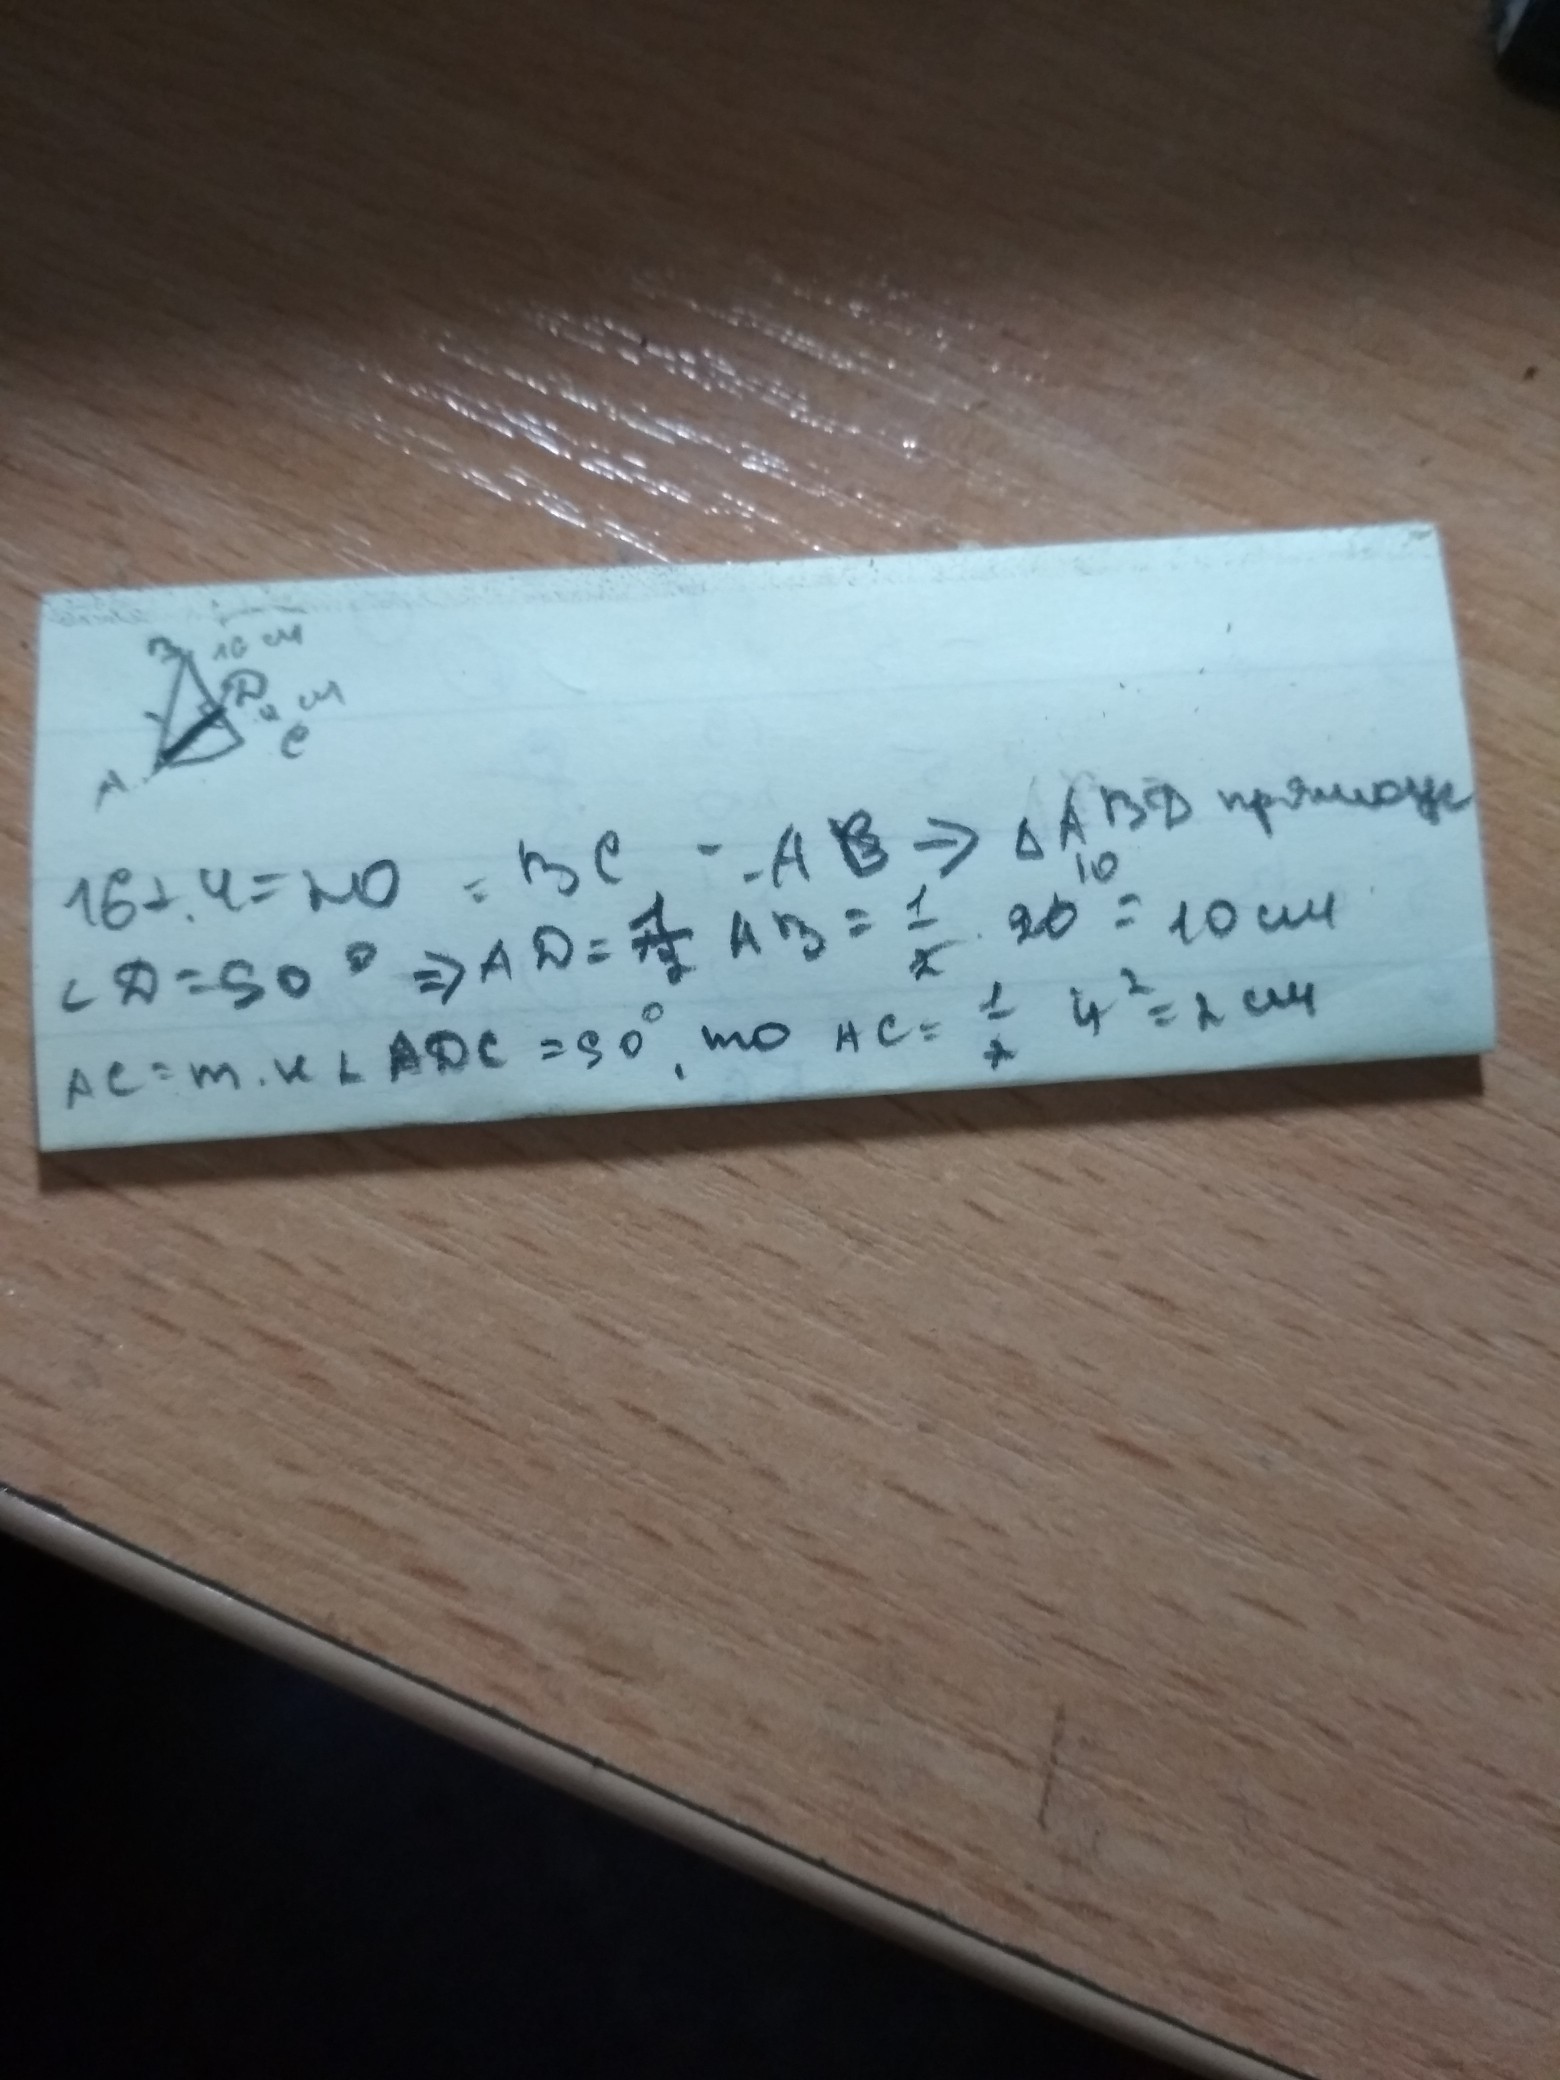 B 16 см
D
4 см
C
A
16+.4=20 = BC = AB => Δ ABD прямоуг
∠D=90° => AD= 1/2 AB = 1/2 · 20 10 = 10 см
AC = т.к ∠ ADC = 90°, то AC = 1/2 4 2 = 2 см